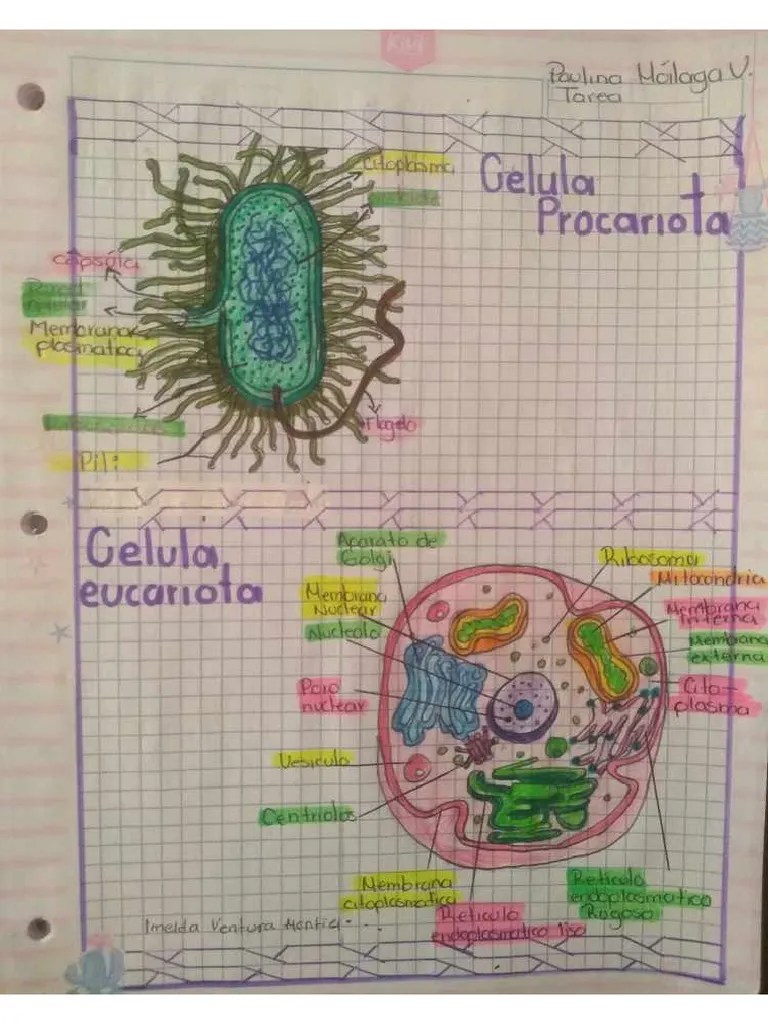 Paulina Málaga V.
Tarea
Celula
Procariota
Citoplasma
capsula
Membrana
plasmatica
Flagelo
Pili
Celula
eucariota
Aparato de
Golgi
Ribosoma
Mitocondria
Membrana
Nuclear
Membrana
interna
Nucleolo
Membrana
externa
Poro
nuclear
Cito-
plasma
Vesicula
Centriolos
Membrana
citoplasmatica
Reticulo
endoplasmatico
Rugoso
Reticulo
endoplasmatico liso
Imelda Ventura